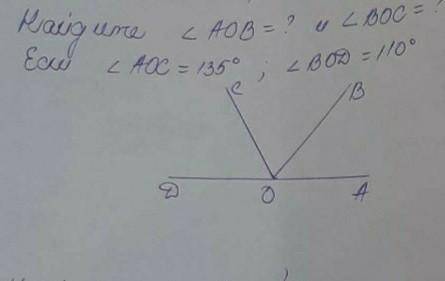 Найдите ∠AOB = ? и ∠BOC = ?
Если ∠AOC = 135° ; ∠BOD = 110°
C B
D O A